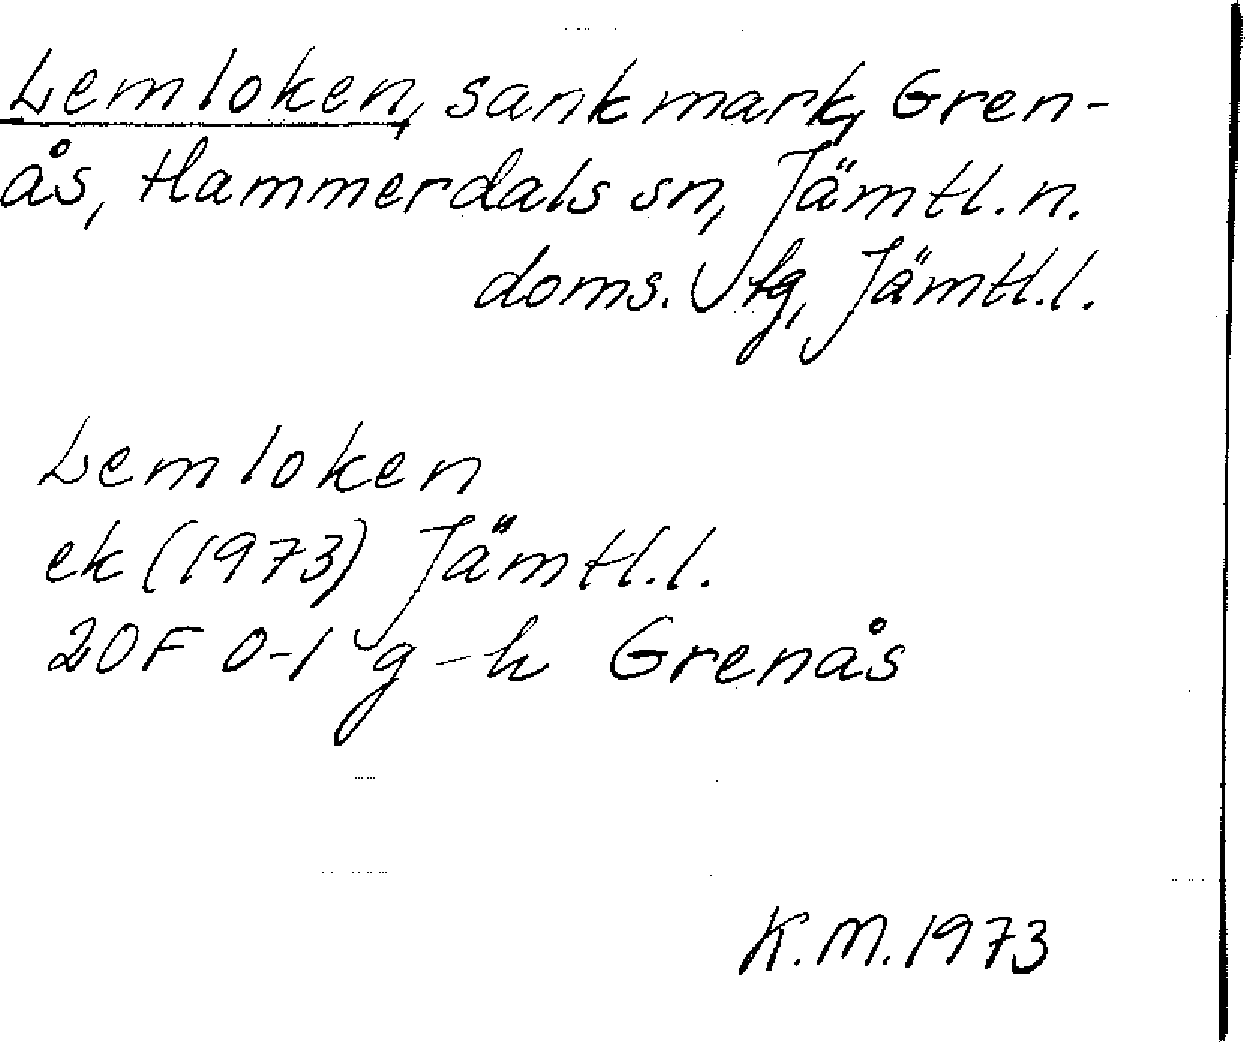 Lemloken, sankmark, Gren-
ås, Hammerdals sn, Jämtl. n.
doms. fg, Jämtl. l.
Lemloken
ek (1973) Jämtl. l.
20F 0-1 g-h Grenås
K. M. 1973